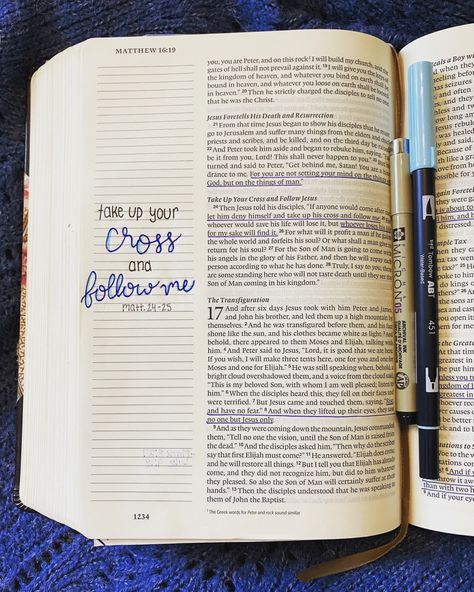 MATTHEW 16:19
take up your
cross
and
follow me
matt. 24-25
1234
you, you are Peter, and on this rock¹ I will build my church, and
gates of hell shall not prevail against it. 19 I will give you the
the kingdom of heaven, and whatever you bind on earth shall
bound in heaven, and whatever you loose on earth shall be
in heaven." 20 Then he strictly charged the disciples to tell no
that he was the Christ.
Jesus Foretells His Death and Resurrection
21 From that time Jesus began to show his disciples that he must
go to Jerusalem and suffer many things from the elders and chief
priests and scribes, and be killed, and on the third day be
22 And Peter took him aside and began to rebuke him, saying,
be it from you, Lord! This shall never happen to you."
turned and said to Peter, "Get behind me, Satan! You are a
drance to me. For you are not setting your mind on the things
God, but on the things of man."
Take Up Your Cross and Follow Jesus
24 Then Jesus told his disciples, "If anyone would come after
let him deny himself and take up his cross and follow me.
whoever would save his life will lose it, but whoever loses his
for my sake will find it. 26 For what will it profit a man if he
the whole world and forfeits his soul? Or what shall a man give
return for his soul? 27 For the Son of Man is going to come with
his angels in the glory of his Father, and then he will repay each
person according to what he has done. 28 Truly, I say to you, there
are some standing here who will not taste death until they see the
Son of Man coming in his kingdom."
The Transfiguration
17 And after six days Jesus took with him Peter and James,
and John his brother, and led them up a high mountain by
themselves. 2 And he was transfigured before them, and his face
shone like the sun, and his clothes became white as light. 3 And
behold, there appeared to them Moses and Elijah, talking with
him. 4 And Peter said to Jesus, "Lord, it is good that we are here.
If you wish, I will make three tents here, one for you and one for
Moses and one for Elijah." 5 He was still speaking when, behold,
a bright cloud overshadowed them, and a voice from the cloud said,
"This is my beloved Son, with whom I am well pleased; listen to
him." 6 When the disciples heard this, they fell on their faces and
were terrified. 7 But Jesus came and touched them, saying, "Rise,
and have no fear." 8 And when they lifted up their eyes, they saw
no one but Jesus only.
9 And as they were coming down the mountain, Jesus commanded
them, "Tell no one the vision, until the Son of Man is raised from
the dead." 10 And the disciples asked him, "Then why do the scribes
say that first Elijah must come?" 11 He answered, "Elijah does come,
and he will restore all things. 12 But I tell you that Elijah has already
come, and they did not recognize him, but did to him whatever
they pleased. So also the Son of Man will certainly suffer at their
hands." 13 Then the disciples understood that he was speaking to
them of John the Baptist.
¹ The Greek words for Peter and rock sound similar
MICRON 05
Tombow ABT
451